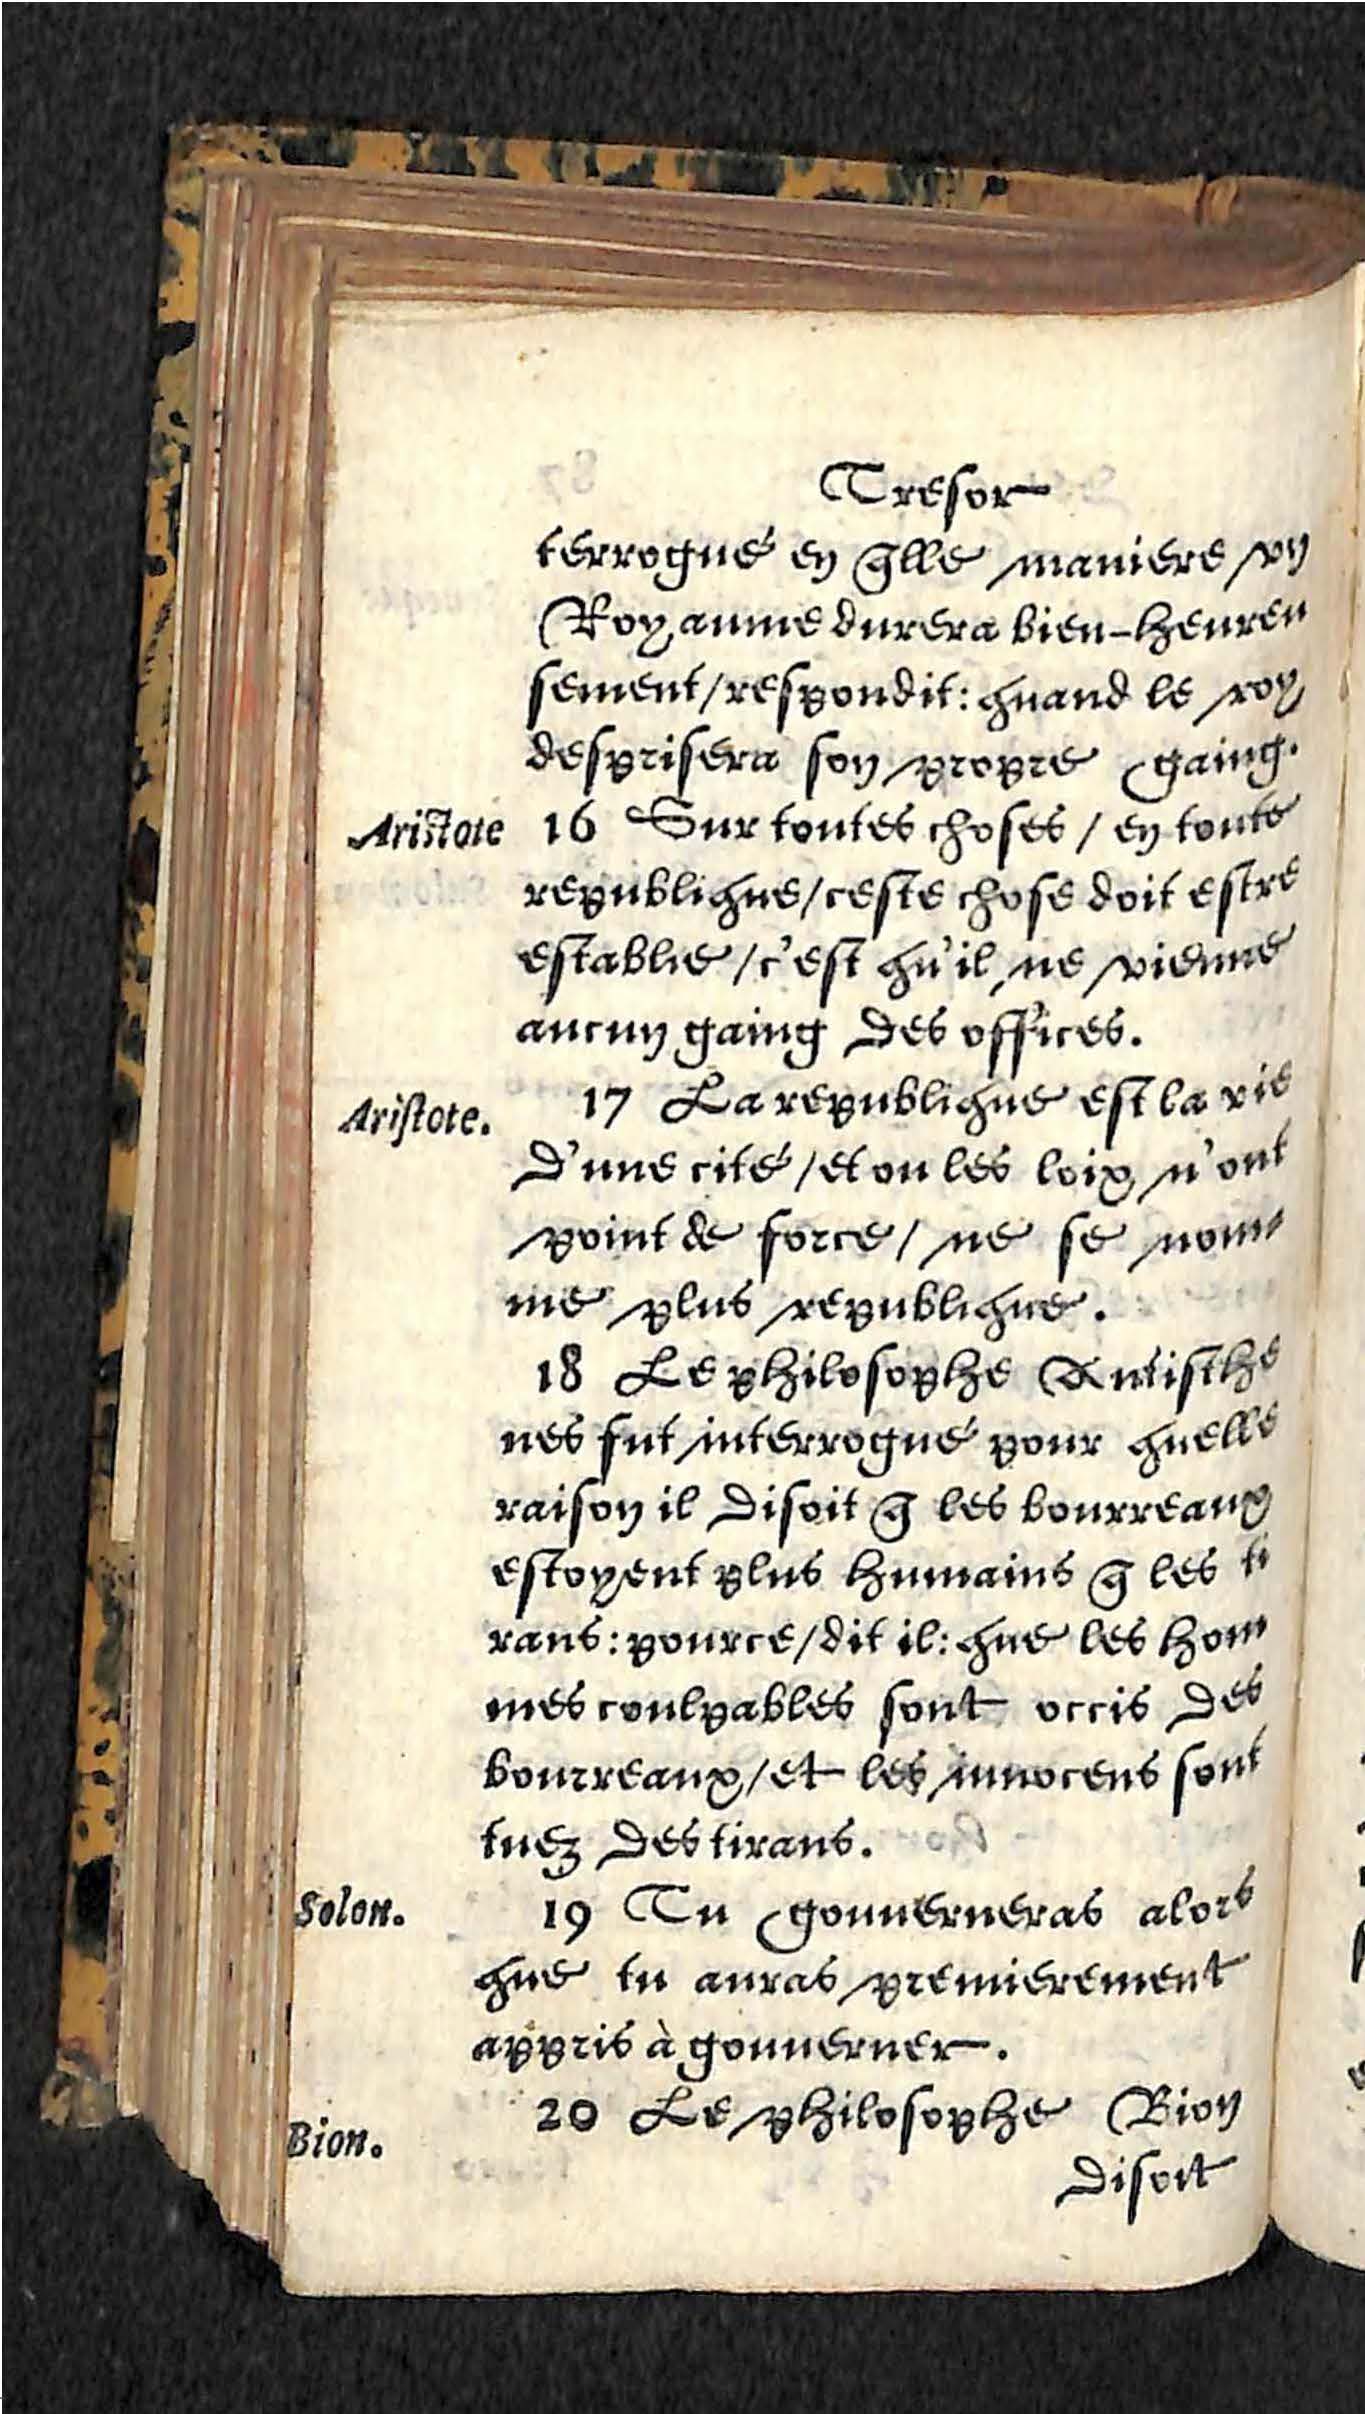 Tresor
terrogué en q̃lle maniere vn
Royaume durera bien-heureu
sement/respondit: quand le roy
desprisera son propre gaing.
Aristote 16 Sur toutes choses / en toute
republique/ceste chose doit estre
establie /c'est qu'il ne vienne
aucun gaing des offices.
Aristote. 17 La republique est la vie
d'une cité /et ou les loix n'ont
point de force / ne se nom
me plus republique.
18 Le philosophe Antisthe
nes fut interrogué pour quelle
raison il disoit q̃ les bourreaux
estoyent plus humains q̃ les ti
rans: pource/dit il: que les hom
mes coulpables sont occis des
bourreaux/et les innocens sont
tuez des tirans.
Solon. 19 Tu gouuerneras alors
que tu auras premierement
appris à gouuerner.
Bion. 20 Le philosophe Bion
disoit